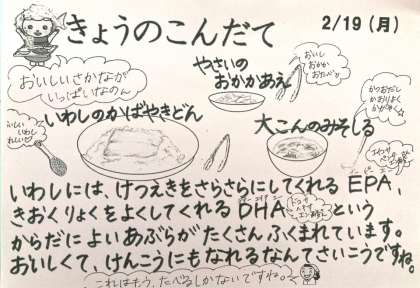 きょうのこんだて
2/19(月)
おいしいさかなが
いっぱいなのん
やさいの
おかかあえ
おいし
おかか
おたべ
かつおだし
かおりよく
かがやく
いわしのかばやきどん
大こんのみそしる
おいしい
いわし
うれしい
いわしには、けつえきをさらさらにしてくれるEPA、
きおくりょくをよくしてくれるDHAという
からだによいあぶらがたくさんふくまれています。
おいしくて、けんこうにもなれるなんてさいこうですね。
これはもう、たべるしかないですね。